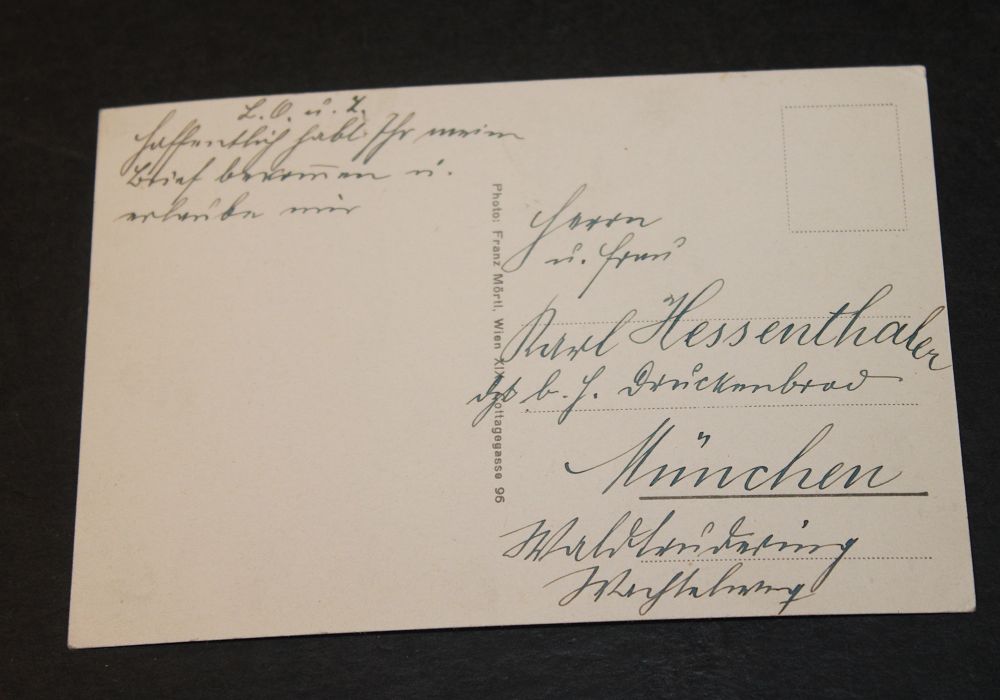 L. O. u. L.
Hoffentlich habt Ihr meinen
Brief bekommen u.
erlaube mir
Photo: Franz Mörtl, Wien XIX, Cottagegasse 96
Herrn
u. Frau
Karl Hessenthaler
dzt b. H. Druckenbrod
München
Waldtrudering
Wachtelweg